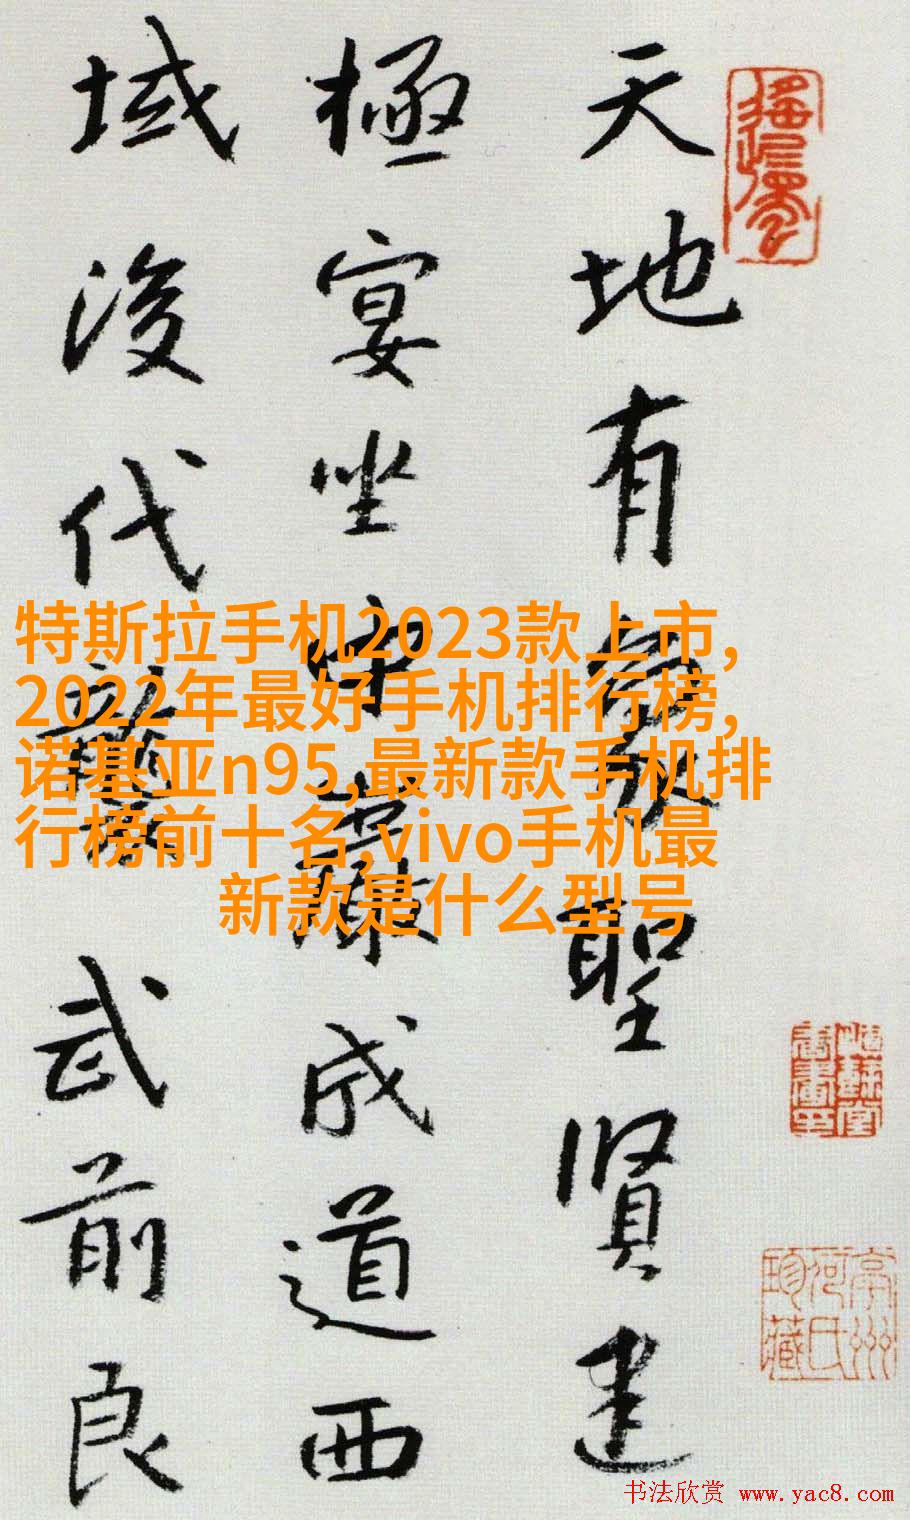 天地有聖賢建
極宴坐中成道西
域後代武前良
特斯拉手机2023款上市,
2022年最好手机排行榜,
诺基亚n95,最新款手机排
行榜前十名,vivo手机最
新款是什么型号
珍藏
书法欣赏 www.yac8.com